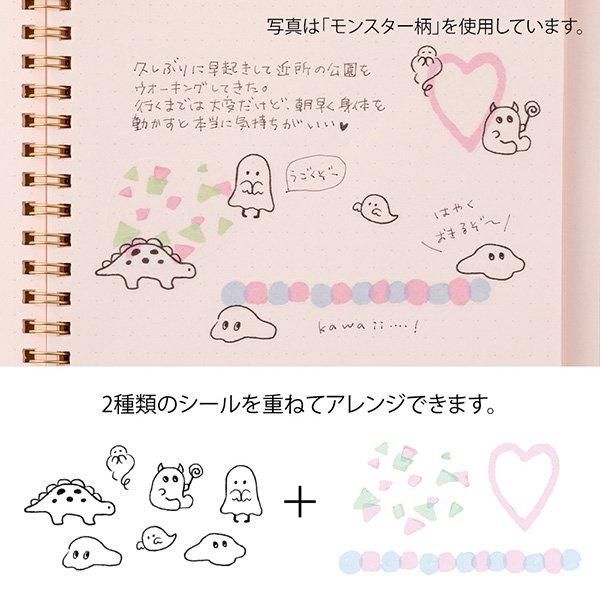 写真は「モンスター柄」を使用しています。
久しぶりに早起きして近所の公園を
ウオーキングしてきた。
行くまでは大変だけど、朝早く身体を
動かすと本当に気持ちがいい♥
うごくぞ〜
はやく
おきるぞ〜!
kawaii····!
2種類のシールを重ねてアレンジできます。
+